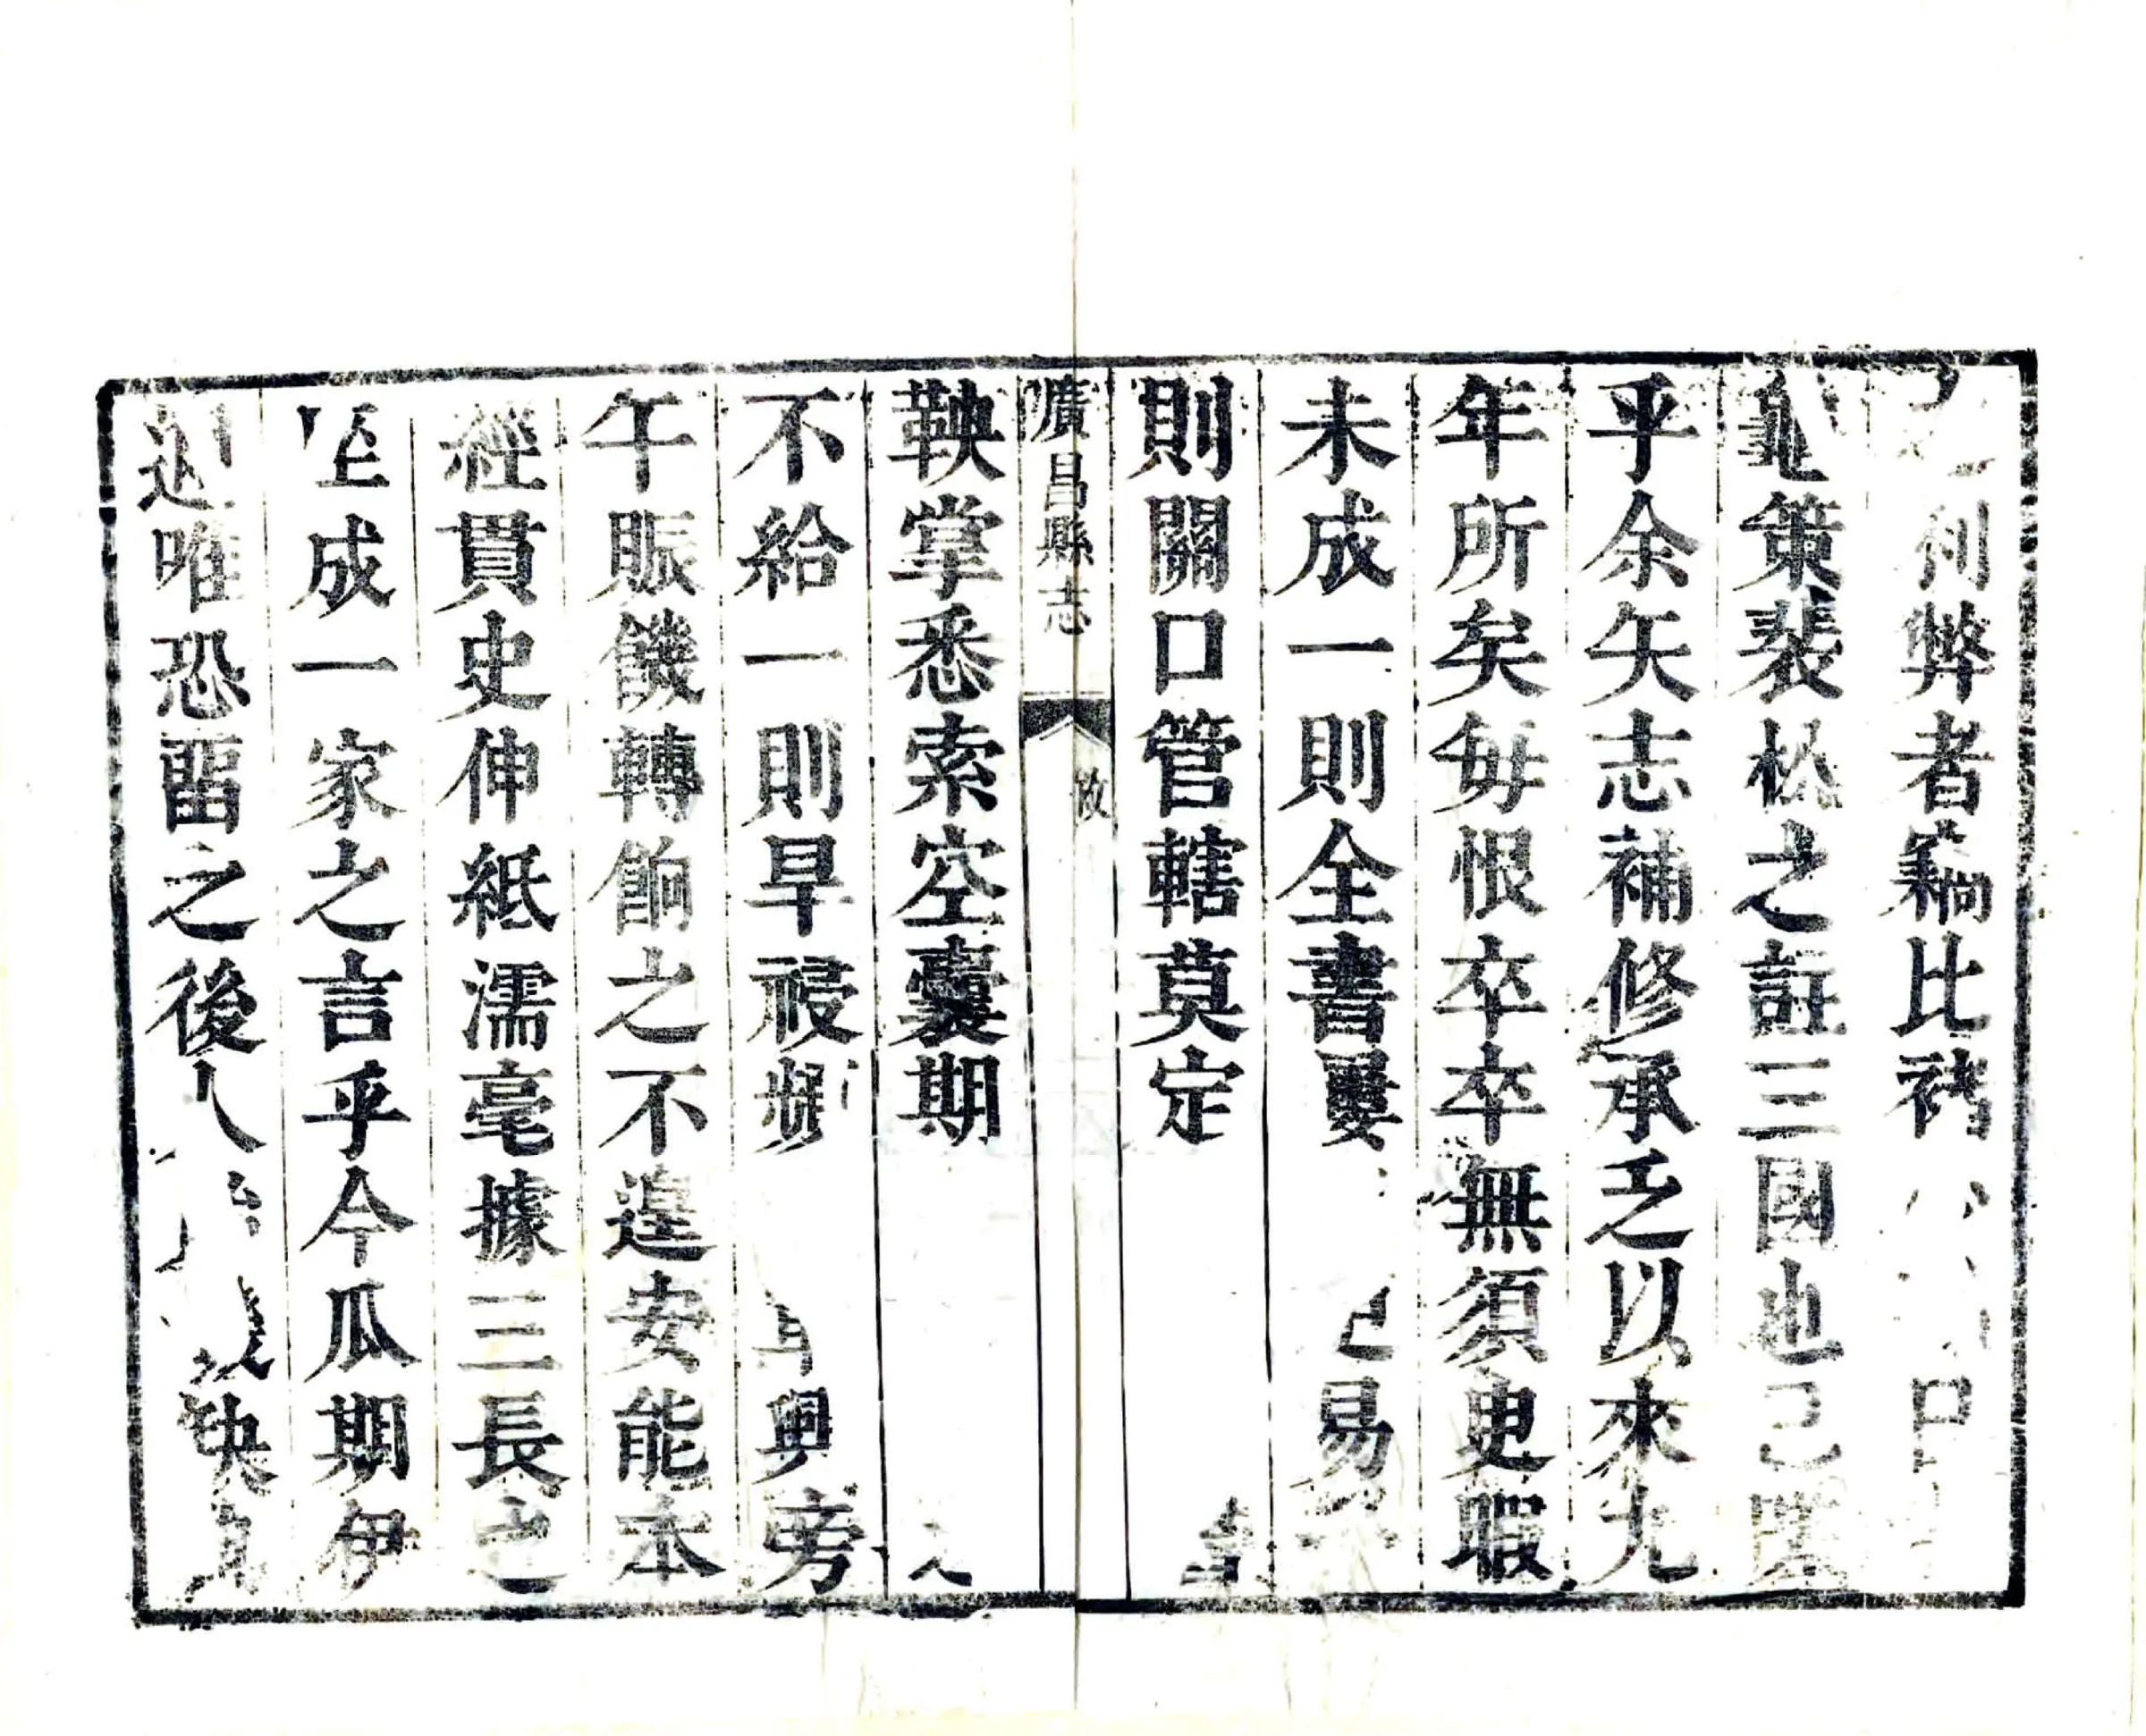 利弊者䅵比褚
龜策裴松之註三國也
乎余矢志補修承乏以來九
年所矣每恨卒卒無須臾暇
未成一則全書屢易
則關口管轄莫定
廣昌縣志
鞅掌悉索空囊期
不給一則旱祲頻興旁
午賑饑轉餉之不遑安能本
經貫史伸紙濡毫據三長之
至成一家之言乎今瓜期伊
邇唯恐畱之後人缺